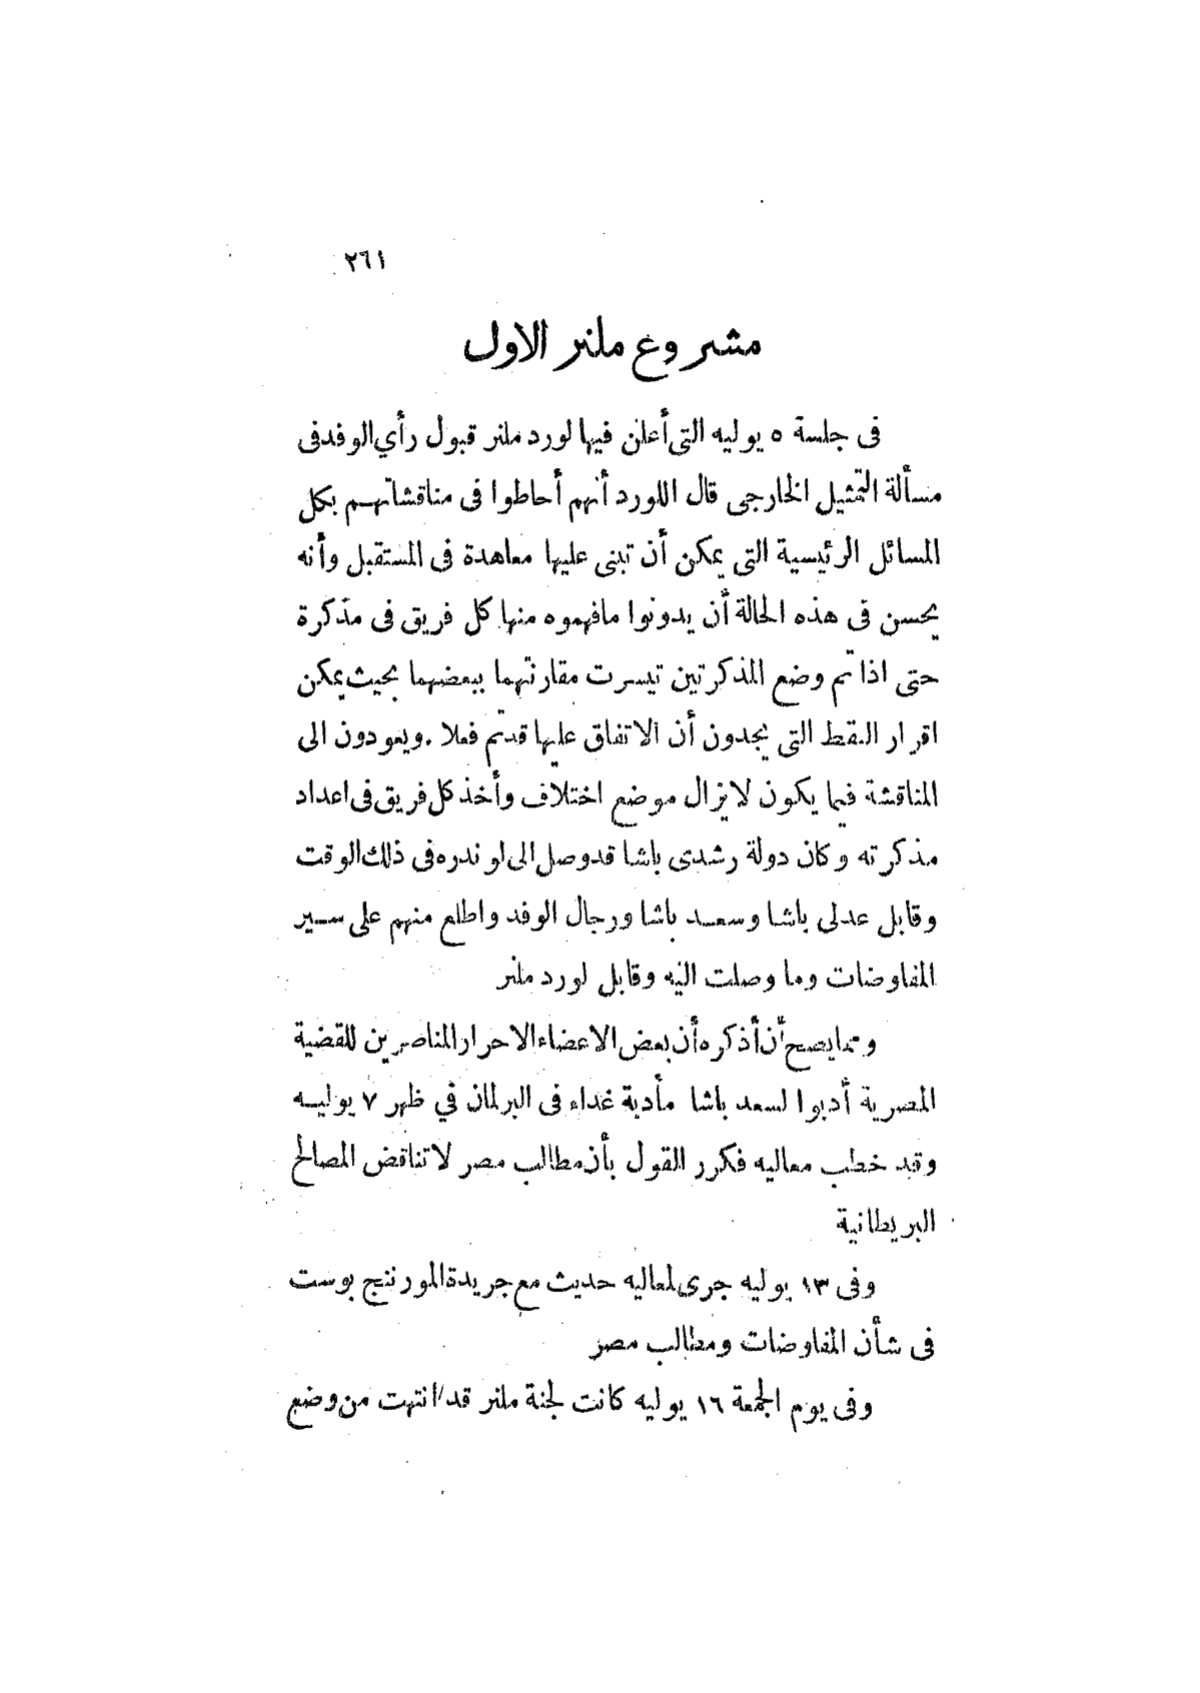 ٢٦١
مشروع ملنر الاول
فى جلسة ٥ يوليه التى أعلن فيها لورد ملنر قبول رأي الوفد فى
مسألة التمثيل الخارجى قال اللورد أنهم أحاطوا فى مناقشاتهم بكل
المسائل الرئيسية التى يمكن أن تبنى عليها معاهدة فى المستقبل وأنه
يحسن فى هذه الحالة أن يدونوا مافهموه منها كل فريق فى مذكرة
حتى اذا تم وضع المذكرتين تيسرت مقارنتهما ببعضهما بحيث يمكن
اقرار النقط التى يجدون أن الاتفاق عليها قد تم فعلا . ويعودون الى
المناقشة فيما يكون لايزال موضع اختلاف وأخذ كل فريق فى اعداد
مذكرته وكان دولة رشدى باشا قدوصل الى لوندره فى ذلك الوقت
وقابل عدلى باشا وسعد باشا ورجال الوفد واطلع منهم على سير
المفاوضات وما وصلت اليه وقابل لورد ملنر
ومما يصح أن أذكره أن بعض الاعضاء الاحرار المناصرين للقضية
المصرية أدبوا لسعد باشا مأدبة غداء فى البرلمان في ظهر ٧ يوليه
وقد خطب معاليه فكرر القول بأن مطالب مصر لاتناقض المصالح
البريطانية
وفى ١٣ يوليه جرى لمعاليه حديث مع جريدة المورننج بوست
فى شأن المفاوضات ومطالب مصر
وفى يوم الجمعة ١٦ يوليه كانت لجنة ملنر قد انتهت من وضع